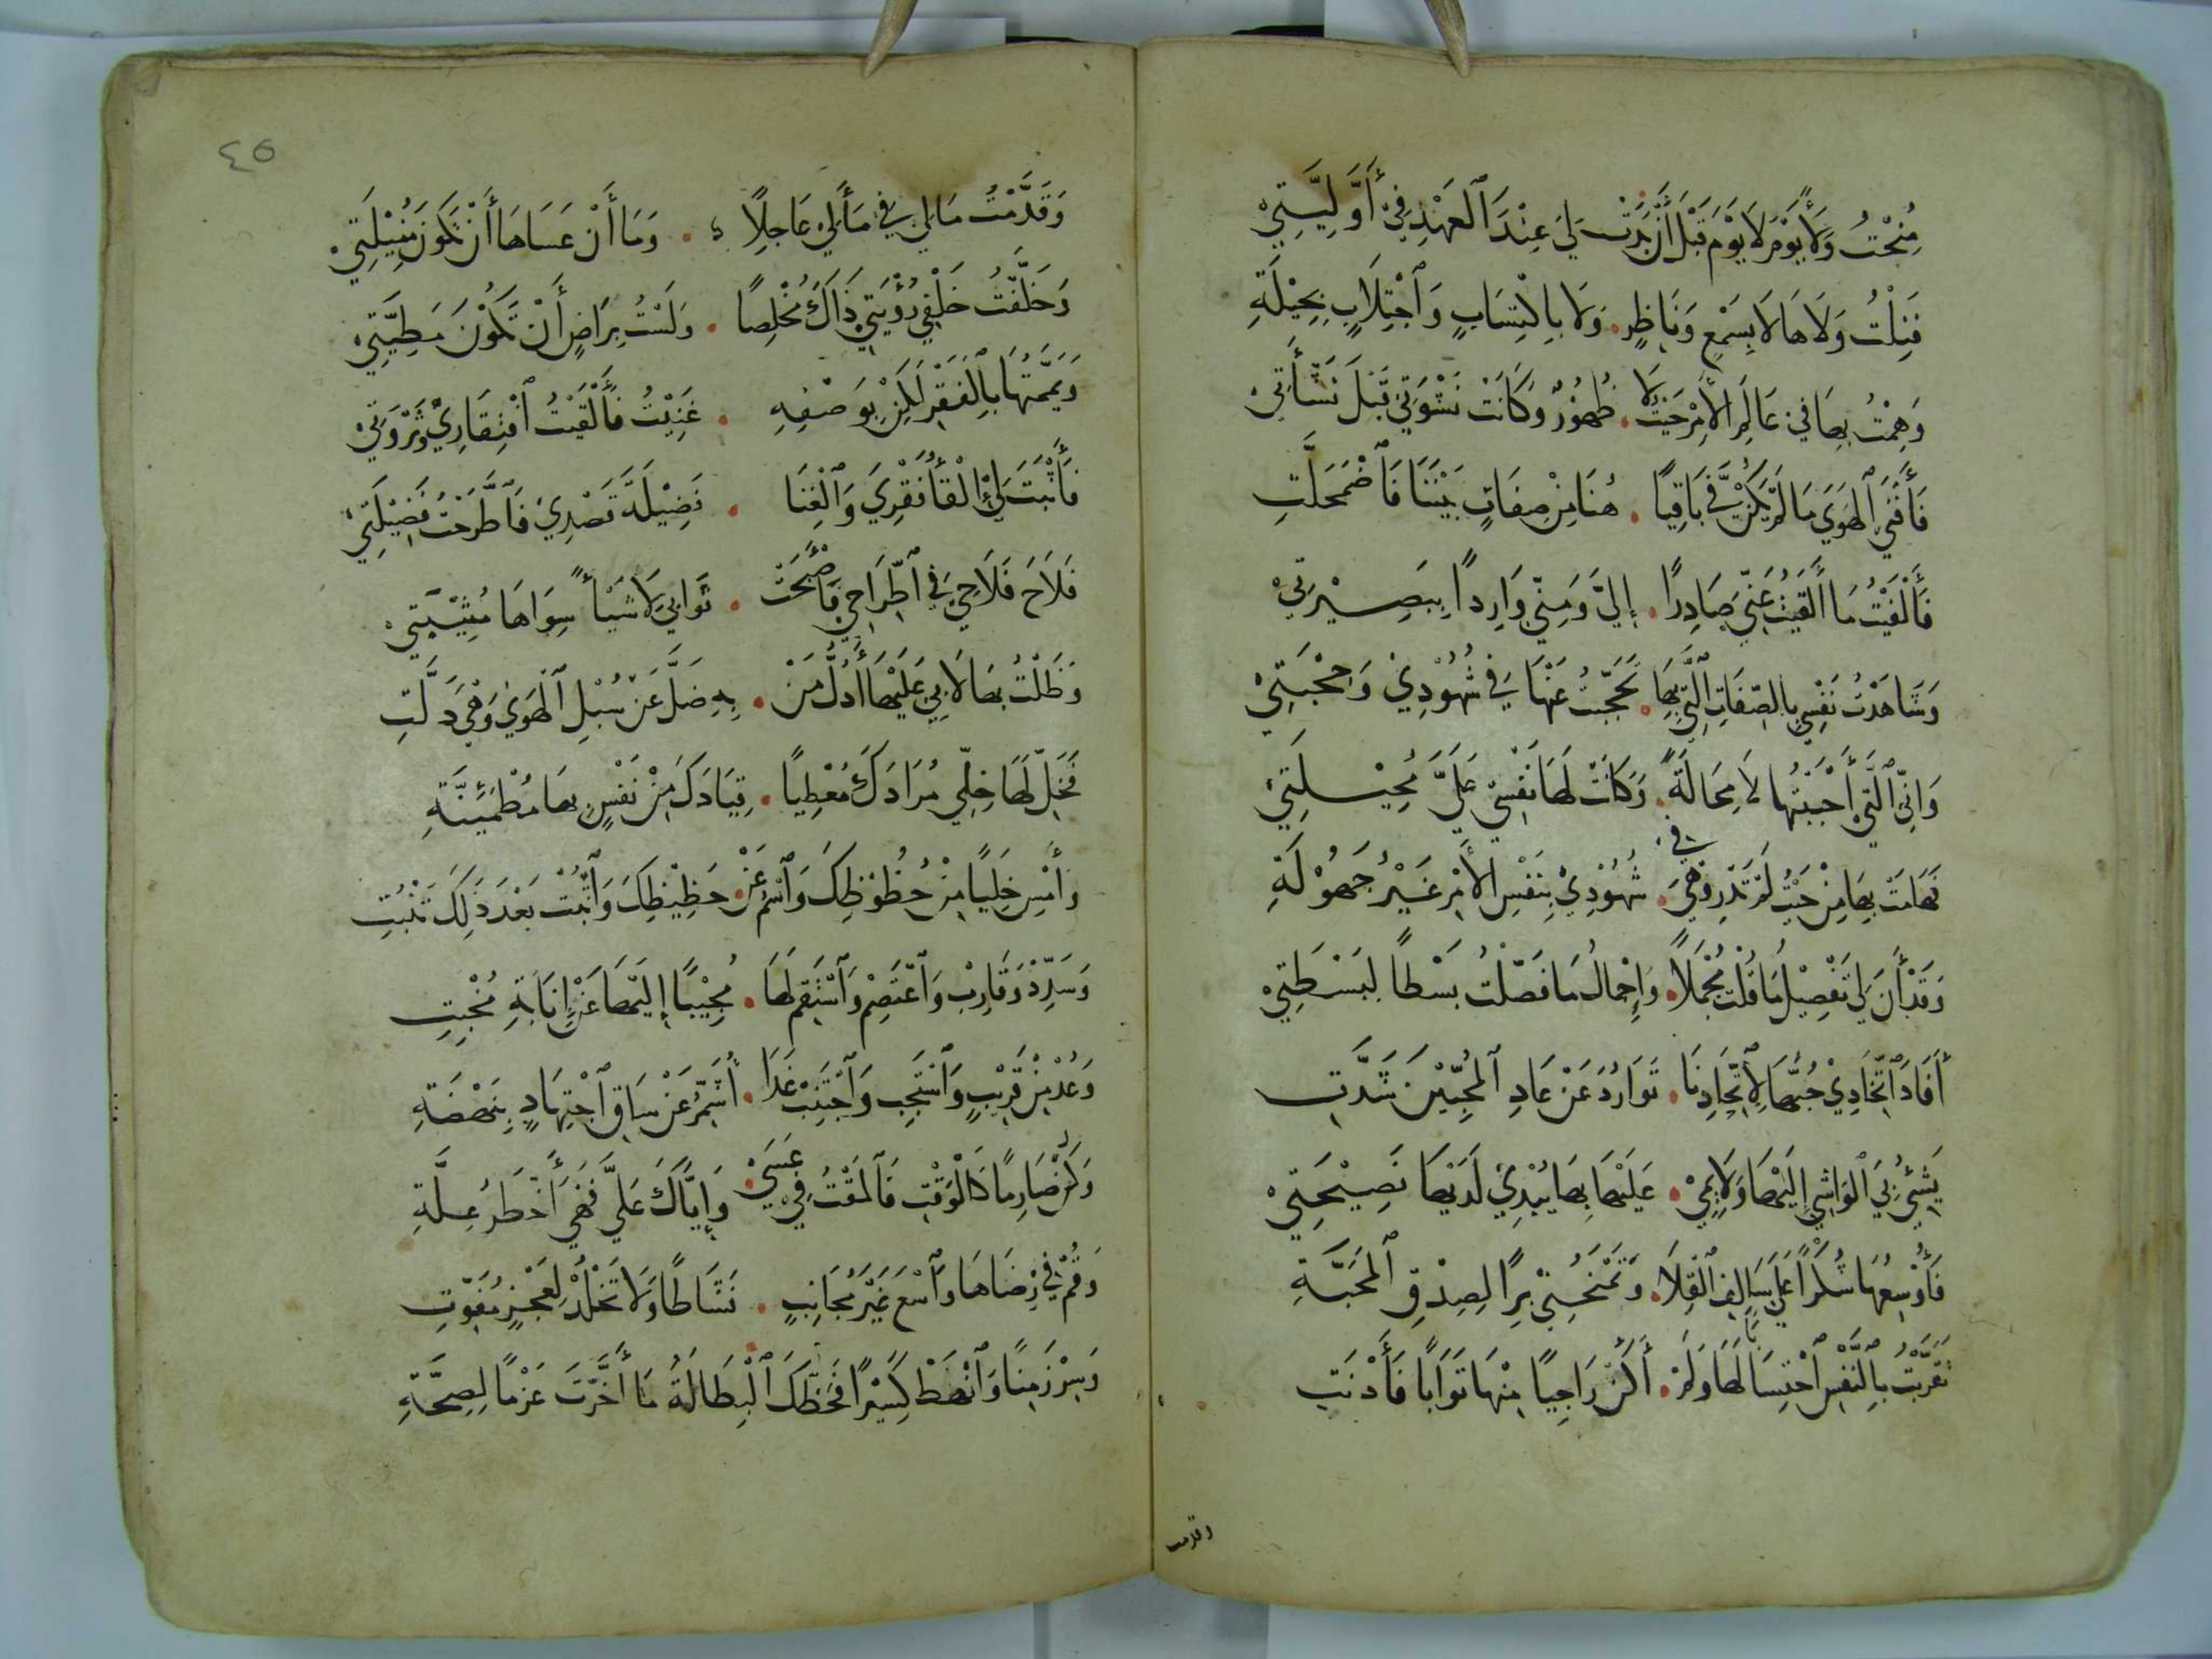 مُنِحْتُ وَلَاهَا يَوْمَ لَا يَوْمَ قَبْلَ أَنْ بَدَتْ لِيَ عِنْدَ ٱلْعَهْدِ فِيْ أَوَّلِيَّتِيْ
فَنِلْتُ وَلَاهَا لَا بِسَمْعٍ وَنَاظِرٍ . وَلَا بِاكْتِسَابٍ وَٱجْتِلَابِ جِبِلَّةِ
وَهِمْتُ بِهَا فِي عَالَمِ الأَمْرِ حَيْثُ لَا . ظُهُوْرٌ وَكَانَتْ نَشْوَتِيْ قَبْلَ نَشْأَتِيْ
فَأَفْنَى ٱلْهَوَى مَا لَمْ يَكُنْ ثَمَّ بَاقِيًا . هُنَا مِنْ صِفَاتٍ بَيْنَنَا فَٱضْمَحَلَّتِ
فَأَلْفَيْتُ مَا أَلْقَيْتُ عَنِّي صَادِرًا . إِلَيَّ وَمِنِّي وَارِدًا بِبَصِيْرَتِيْ
وَشَاهَدْتُ نَفْسِي بِالصِّفَاتِ ٱلَّتِي بِهَا . تَحَجَّبْتُ عَنْهَا فِي شُهُوْدِيْ وَحِجْبَتِيْ
وَانِّي ٱلَّتِي أَحْبَبْتُهَا لَا مَحَالَةً . وَكَانَتْ لَهَا نَفْسِيْ عَلَيَّ مُحِيْلَتِيْ
فَهَامَتْ بِهَا مِنْ حَيْثُ لَمْ تَدْرِ وَهْيَ فِي . شُهُوْدِيْ بِنَفْسِ الأَمْرِ غَيْرُ جَهُوْلَةِ
وَقَدْ أَنَ لِي تَفْصِيْلُ مَا قُلْتُ مُجْمَلًا . وَإِجْمَالُ مَا فَصَّلْتُ بَسْطًا لِبَسْطَتِيْ
أَفَادَ ٱتِّخَاذِيْ حُبَّهَا لِاتِّحَادِنَا . نَوَادِرَ عَنْ عَادِ ٱلْمُحِبِّيْنَ شَذَّتِ
يَشِيْ بِيَ ٱلْوَاشِي إِلَيْهَا وَلَائِمِيْ . عَلَيْهَا بِهَا يُبْدِيْ لَدَيْهَا نَصِيْحَتِيْ
فَأُوْسِعُهَا شُكْرًا عَلَى سَالِفِ ٱلْقِلَا . وَتَمْنَحُنِيْ بِرًّا لِصِدْقِ ٱلْمَحَبَّةِ
تَقَرَّبْتُ بِٱلنَّفْسِ ٱحْتِسَابًا لَهَا وَلَمْ . أَكُنْ رَاجِيًا مِنْهَا ثَوَابًا فَأَدْنَتِ
وقدمت
٤٥
وَقَدَّمْتُ مَا لِي فِي مَآلِيَ عَاجِلًا . وَمَا أَنْ عَسَاهَا أَنْ تَكُوْنَ مُنِيْلَتِيْ
وَخَلَّفْتُ خَلْفِي رُؤْيَتِيْ ذَاكَ مُخْلِصًا . وَلَسْتُ بِرَاضٍ أَنْ تَكُوْنَ مَطِيَّتِيْ
وَيَمَّمْتُهَا بِٱلْفَقْرِ لَكِنْ بِوَصْفِهِ . غَنِيْتُ فَأَلْقَيْتُ ٱفْتِقَارِيْ وَثَرْوَتِيْ
فَأَثْبَتَ لِيْ إِلْقَأُ فَقْرِيَ وَٱلْغِنَا . فَضِيْلَةَ قَصْدِيْ فَٱطَّرَحْتُ فَضِيْلَتِيْ
فَلَاحَ فَلَاحِيَ فِي ٱطِّرَاحِي فَأَصْبَحَتْ . ثَوَابِيَ لَا شَيْأً سِوَاهَا مُثِيْبَتِيْ
وَظَلْتُ بِهَا لَا بِيْ عَلَيْهَا أَدُلُّ مَنْ . بِهِ ضَلَّ عَنْ سُبْلِ ٱلْهَوَىْ وَهْيَ دَلَّتِ
فَخَلِّ لَهَا خِلِّي مُرَادَكَ مُعْطِيًا . قِيَادَكَ مِنْ نَفْسٍ بِهَا مُطْمَئِنَّةِ
وَأَمْسِ خَلِيًّا مِنْ حُظُوْظِكَ وَٱسْمُ عَنْ . حَظِيْظِكَ وَٱثْبُتْ بَعْدَ ذَلِكَ تَنْبُتِ
وَسَدِّدْ وَقَارِبْ وَٱعْتَصِمْ وَٱسْتَقِمْ لَهَا . مُجِيْبًا إِلَيْهَا عَنْ إِنَابَةِ مُخْبِتِ
وَعُدْ مِنْ قَرِيْبٍ وَٱسْتَجِبْ وَٱجْتَنِبْ غَدًا . أُشَمِّرُ عَنْ سَاقِ ٱجْتِهَادٍ بِنَهْضَةِ
وَكُنْ صَارِمًا كَالْوَقْتِ فَالْمَقْتُ فِيْ عَسَىْ . وَإِيَّاكَ عَلَّ فَهْيَ أَخْطَرُ عِلَّةِ
وَقُمْ فِيْ رِضَاهَا وَٱسْعَ غَيْرَ مُجَانِبٍ . نَشَاطًا وَلَا تَخْلُدْ لِعَجْزٍ مُفَوِّتِ
وَسِرْ زَمِنًا وَٱنْهَضْ كَسِيْرًا فَحَظُّكَ ٱلْبِطَالَةُ مَا أَخَّرْتَ عَزْمًا لِصِحَّةِ